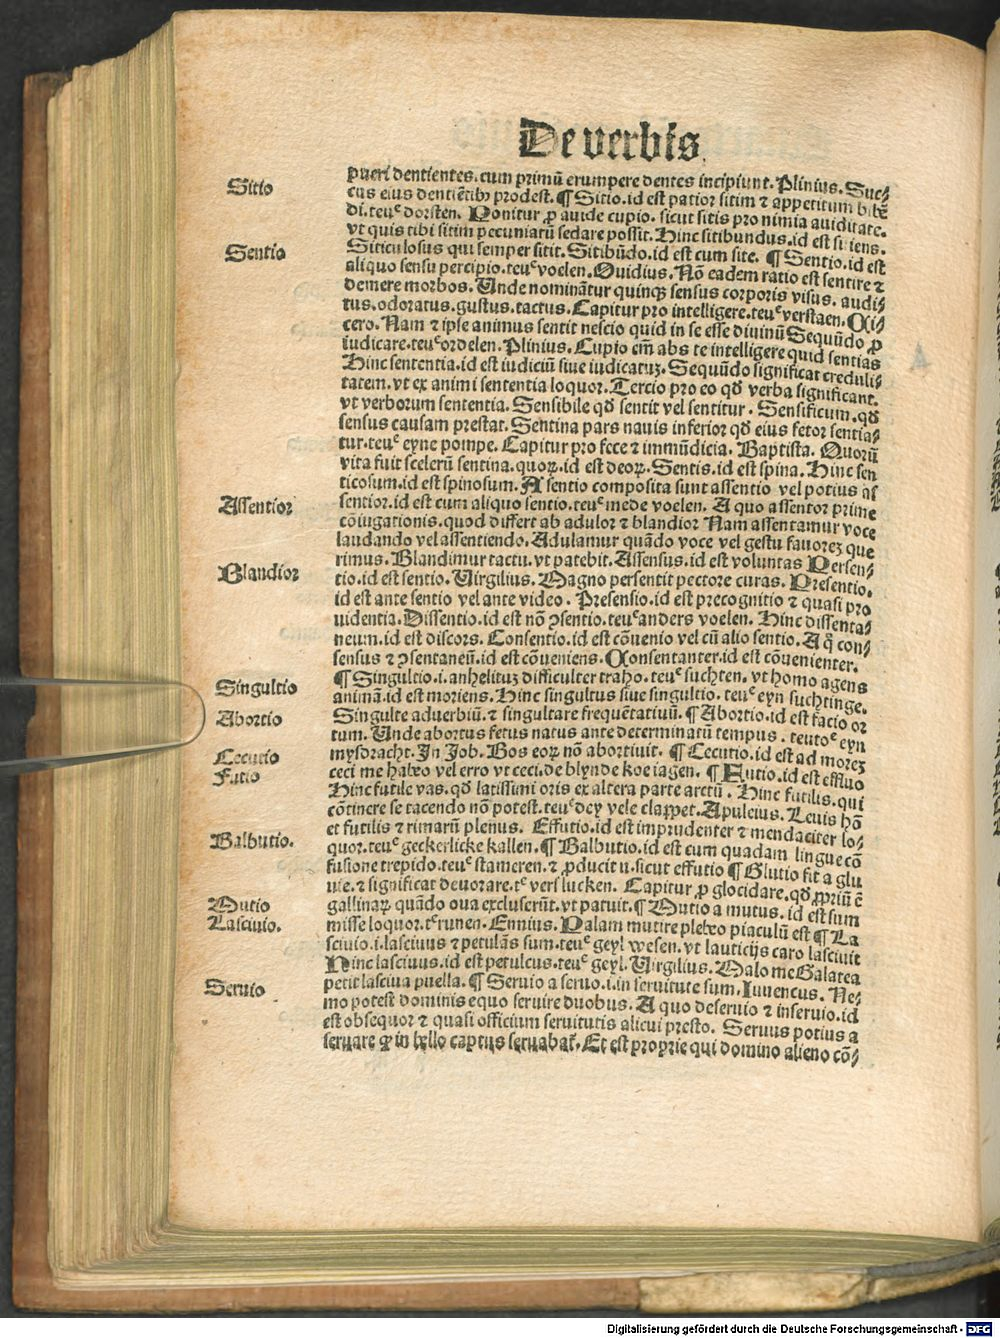 De verbis.
pueri dentientes. cum primū erumpere dentes incipiunt. Plinius. Suc⸗
Sitio
cus eius dentiētibꝫ prodest. ¶ Sitio. id est patior sitim ⁊ appetitum bibē
di. teuᵉ dorsten. Ponitur ꝓ auide cupio. sicut sitis pro nimia auiditate.
vt quis tibi sitim pecuniarū sedare possit. Hinc sitibundus. id est sitiens.
Sentio
Siticulosus qui semper sitit. Sitibūdo. id est cum site. ¶ Sentio. id est
aliquo sensu percipio. teuᵉ voelen. Ouidius. Nō eadem ratio est sentire ⁊
demere morbos. Unde nominātur quinqꝫ sensus corporis visus. audi⸗
tus. odoratus. gustus. tactus. Capitur pro intelligere. teuᵉ verstaen. Ci⸗
cero. Nam ⁊ ipse animus sentit nescio quid in se esse diuinū Sequūdo ꝓ
iudicare. teuᵉ ordelen. Plinius. Cupio em̄ abs te intelligere quid sentias
Hinc sententia. id est iudiciū siue iudicatuꝫ. Sequūdo significat creduli⸗
tatem. vt ex animi sententia loquor. Tercio pro eo qd̄ verba significant.
vt verborum sententia. Sensibile qd̄ sentit vel sentitur. Sensificum. qd̄
sensus causam prestat. Sentina pars nauis inferior qd̄ eius fetor sentia⸗
tur. teuᵉ eyne pompe. Capitur pro fece ⁊ immūdicia. Baptista. Quorū
vita fuit scelerū sentina. quoꝝ. id est deoꝝ. Sentis. id est spina. Hinc sen
ticosum. id est spinosum. A sentio composita sunt assentio vel potius as
Assentior
sentior. id est cum aliquo sentio. teuᵉ mede voelen. A quo assentor prime
cōiugationis. quod differt ab adulor ⁊ blandior Nam assentamur voce
laudando vel assentiendo. Adulamur quādo voce vel gestu fauoreꝫ que
rimus. Blandimur tactu. vt patebit. Assensus. id est voluntas Persen⸗
Blandior
tio. id est sentio. Virgilius. Magno persentit pectore curas. Presentio.
id est ante sentio vel ante video. Presensio. id est precognitio ⁊ quasi pro
uidentia. Dissentio. id est nō ꝯsentio. teuᵉ anders voelen. Hinc dissenta⸗
neum. id est discors. Consentio. id est cōuenio vel cū alio sentio. A q̊ con⸗
sensus ⁊ ꝯsentaneū. id est cōueniens. Consentanter. id est cōuenienter.
Singultio
¶ Singultio. i. anhelituꝫ difficulter traho. teuᵉ suchten. vt homo agens
animā. id est moriens. Hinc singultus siue singultio. teuᵉ eyn suchtinge.
Abortio
Singulte aduerbiū. ⁊ singultare frequētatiuū. ¶ Abortio. id est facio or
tum. Unde abortus fetus natus ante determinatū tempus. teutoᵉ eyn
Cecutio
mysdracht. In Job. Bos eoꝝ nō abortiuit. ¶ Cecutio. id est ad moreꝫ
Futio
ceci me habeo vel erro vt ceci. de blynde koe iagen. ¶ Futio. id est effluo
Hinc futile vas. qd̄ latissimi oris ex altera parte arctū. Hinc futilis. qui
cōtinere se tacendo nō potest. teuᵉ dey vele clappet. Apuleius. Leuis hō
et futilis ⁊ rimarū plenus. Effutio. id est imprudenter ⁊ mendaciter lo⸗
Balbutio.
quor. teuᵉ geckerlicke kallen. ¶ Balbutio. id est cum quadam lingue cō
fusione trepido. teuᵉ stameren. ⁊ ꝓducit u. sicut effutio ¶ Glutio fit a glu
uie. ⁊ significat deuorare. tᵉ verslucken. Capitur ꝓ glocidare. qd̄ ꝓpriū ē
Mutio
gallinaꝝ quādo oua excluserūt. vt patuit. ¶ Mutio a mutus. id est sum
Lasciuio.
misse loquor. tᵉ runen. Ennius. Palam mutire plebeo piaculū est ¶ La
sciuio. i. lasciuus ⁊ petulās sum. teuᵉ geyl wesen. vt lauticijs caro lasciuit
Hinc lasciuus. id est petulcus. teuᵉ geyl. Virgilius. Malo me Galatea
Seruio
petit lasciua puella. ¶ Seruio a seruo. i. in seruitute sum. Iuuencus. Ne⸗
mo potest dominis equo seruire duobus. A quo deseruio ⁊ inseruio. id
est obsequor ⁊ quasi officium seruitutis alicui presto. Seruus potius a
seruare qꝛ in bello captus seruabat᷑. Et est proprie qui domino alieno cō⸗
Digitalisierung gefördert durch die Deutsche Forschungsgemeinschaft - DFG